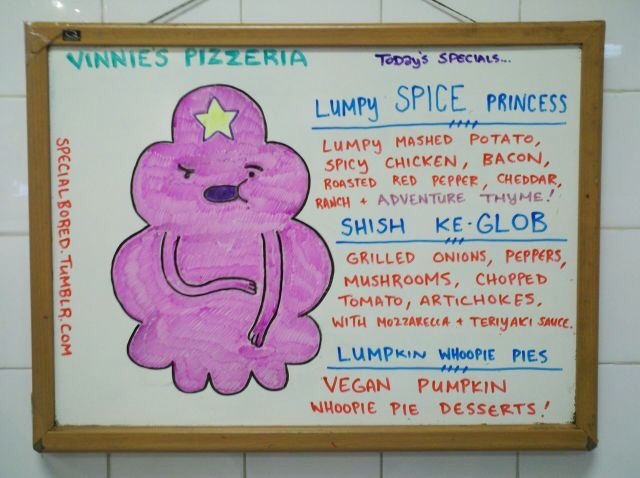 VINNIE'S PIZZERIA
TODAY'S SPECIALS...
SPECIALBORED.TUMBLR.COM
LUMPY SPICE PRINCESS
LUMPY MASHED POTATO,
SPICY CHICKEN, BACON,
ROASTED RED PEPPER, CHEDDAR,
RANCH + ADVENTURE THYME!
SHISH KE-GLOB
GRILLED ONIONS, PEPPERS,
MUSHROOMS, CHOPPED
TOMATO, ARTICHOKES,
WITH MOZZARELLA + TERIYAKI SAUCE.
LUMPKIN WHOOPIE PIES
VEGAN PUMPKIN
WHOOPIE PIE DESSERTS!